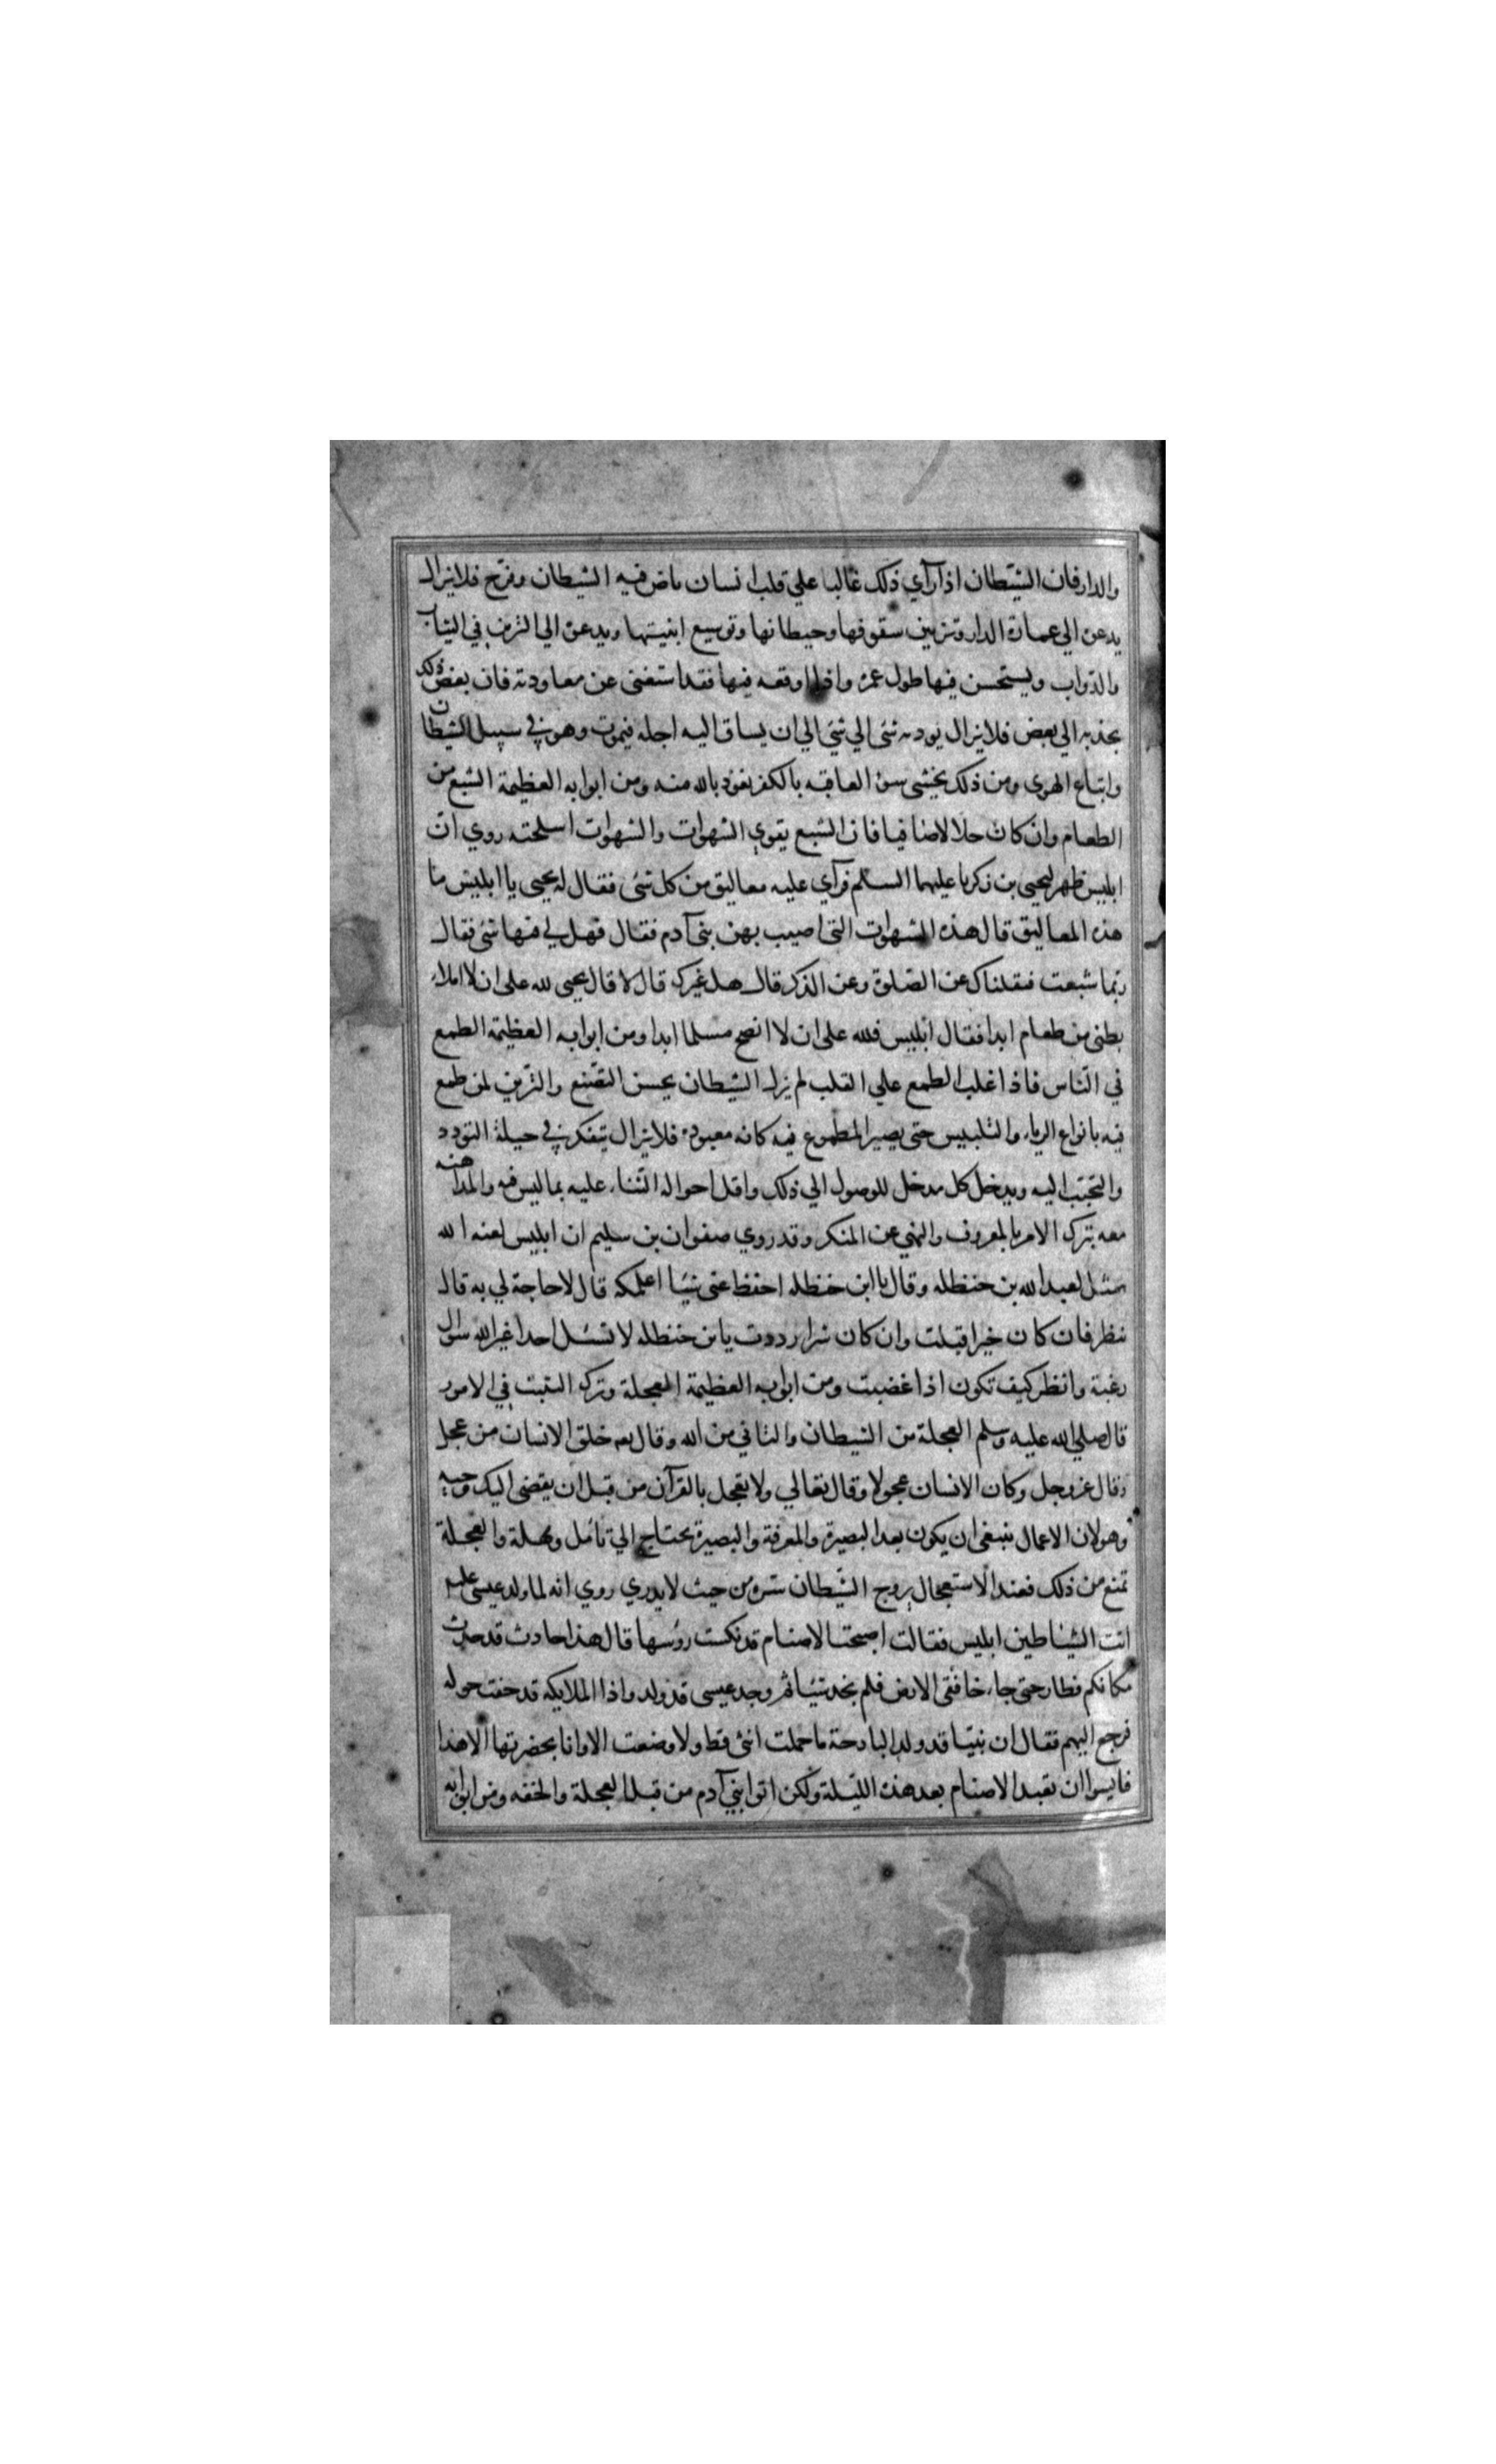 والدار فان الشيطان اذا رآي ذلك غالبا علي قلب انسان باض فيه الشيطان وفرّخ فلا يزال
يدعن الي عمارة الدار وتزيين سقوفها وحيطانها وتوسيع ابنيتها ويدعن الي التزين في الثياب
والدواب ويستحسن فيها طول عمره واذا اوقعه فيها فقد استغنى عن معاودته فان بعض ذلك
يجذبه الي بعض فلا يزال يوديه شئ الي شئ الي ان يساق اليه اجله فيموت وهو في سبيل الشيطان
واتباع الهوى ومن ذلك يخشى سوء العاقبه بالكفر نعوذ بالله منه ومن ابوابه العظيمة الشبع من
الطعام وان كان حلالا صافيا فان الشبع يقوي الشهوات والشهوات اسلحته روي ان
ابليس ظهر ليحيى بن زكريا عليهما السلام فرآي عليه معاليق من كل شئ فقال له يحيى يا ابليس ما
هذه المعاليق قال هذه الشهوات التى اصيب بهن بنى آدم فقال فهل لي فيها شئ فقال
ربما شبعت فثقلناك عن الصلوة وعن الذكر قال هل غيرك قال لا قال يحيى لله على ان لا املاء
بطنى من طعام ابدا فقال ابليس فلله على ان لا انصح مسلما ابدا ومن ابوابه العظيمة الطمع
في الناس فاذا غلب الطمع علي القلب لم يزل الشيطان يحسن التصنع والتزين لمن طمع
فيه بانواع الرياء والتلبيس حتى يصير المطموع فيه كانه معبوده فلا يزال يتفكر في حيلة التودد
والتجتب اليه ويدخل كل مدخل للوصول الي ذلك واقل احواله الثناء عليه بما ليس فيه والمداهنه
معه بترك الامر بالمعروف والنهي عن المنكر وقد روي صفوان بن سليم ان ابليس لعنه الله
تمثل لعبد الله بن حنظله وقال يا ابن حنظله احفظ عنى شيئا اعلمكه قال لا حاجة لي به قال
ننظر فان كان خيرا قبلت وان كان شرا رددت يا بن حنظله لا تسئل احدا غير الله سوال
رغبة وانظر كيف تكون اذا غضبت ومن ابوابه العظيمة العجلة وترك التثبت في الامور
قال صلي الله عليه وسلم العجلة من الشيطان والتاني من الله وقال تعه خلق الانسان من عجل
وقال عز وجل وكان الانسان عجولا وقال تعالي ولا تعجل بالقرآن من قبل ان يقضى اليك وحيه
وهو لان الاعمال ينبغى ان يكون بعد البصيرة والمعرفة والبصيرة يحتاج الي تامل ومهلة والعجلة
تمنع من ذلك فعند الاستعجال يروج الشيطان شره من حيث لا يدري روي انه لما ولد عيسى عليه
اتت الشياطين ابليس فقالت اصبحت الاصنام قد نكست رؤسها قال هذا حادث قد حدث
مكانكم فطار حتى جاء خافقى الارض فلم يجد شيئا ثم وجد عيسى قد ولد واذا الملايكه قد حفت حوله
فرجع اليهم فقال ان نبيّا قد ولد البارحة ما حملت انثى قط ولا وضعت الا وانا بحضرتها الا هذا
فايسوا ان تعبد الاصنام بعد هذه الليلة ولكن اتوا بني آدم من قبل العجلة والخفه ومن ابوابه